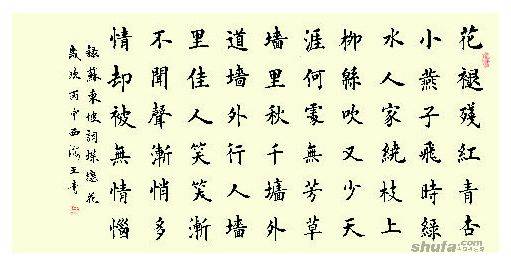 花褪殘紅青杏
小燕子飛時綠
水人家繞枝上
柳緜吹又少天
涯何處無芳草
墻里秋千墻外
道墻外行人墻
里佳人笑笑漸
不聞聲漸悄多
情却被無情惱
錄蘇東坡詞蝶戀花
歲次丙申西海王
shufa.com